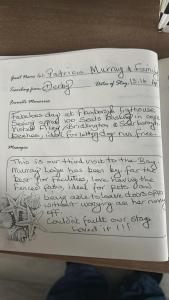 Guest Name(s): Patricia Murray & Family
Travelling from: Derby Dates of Stay: 13-16
Favourite Memories
Fabulous day at Flamborough lighthouse
Seeing approx 100 Seals basking in
Visited Filey, Bridlington & Scarborough
beaches, ideal for letting dog run free.
Messages
This is our third visit to the Bay.
Murray Lodge has been by far the
best for facilities, love having the
fenced patio, ideal for pets and
being able to leave doors open
without worrying about her running
off.
Couldn't fault our stay.
Loved it!!!